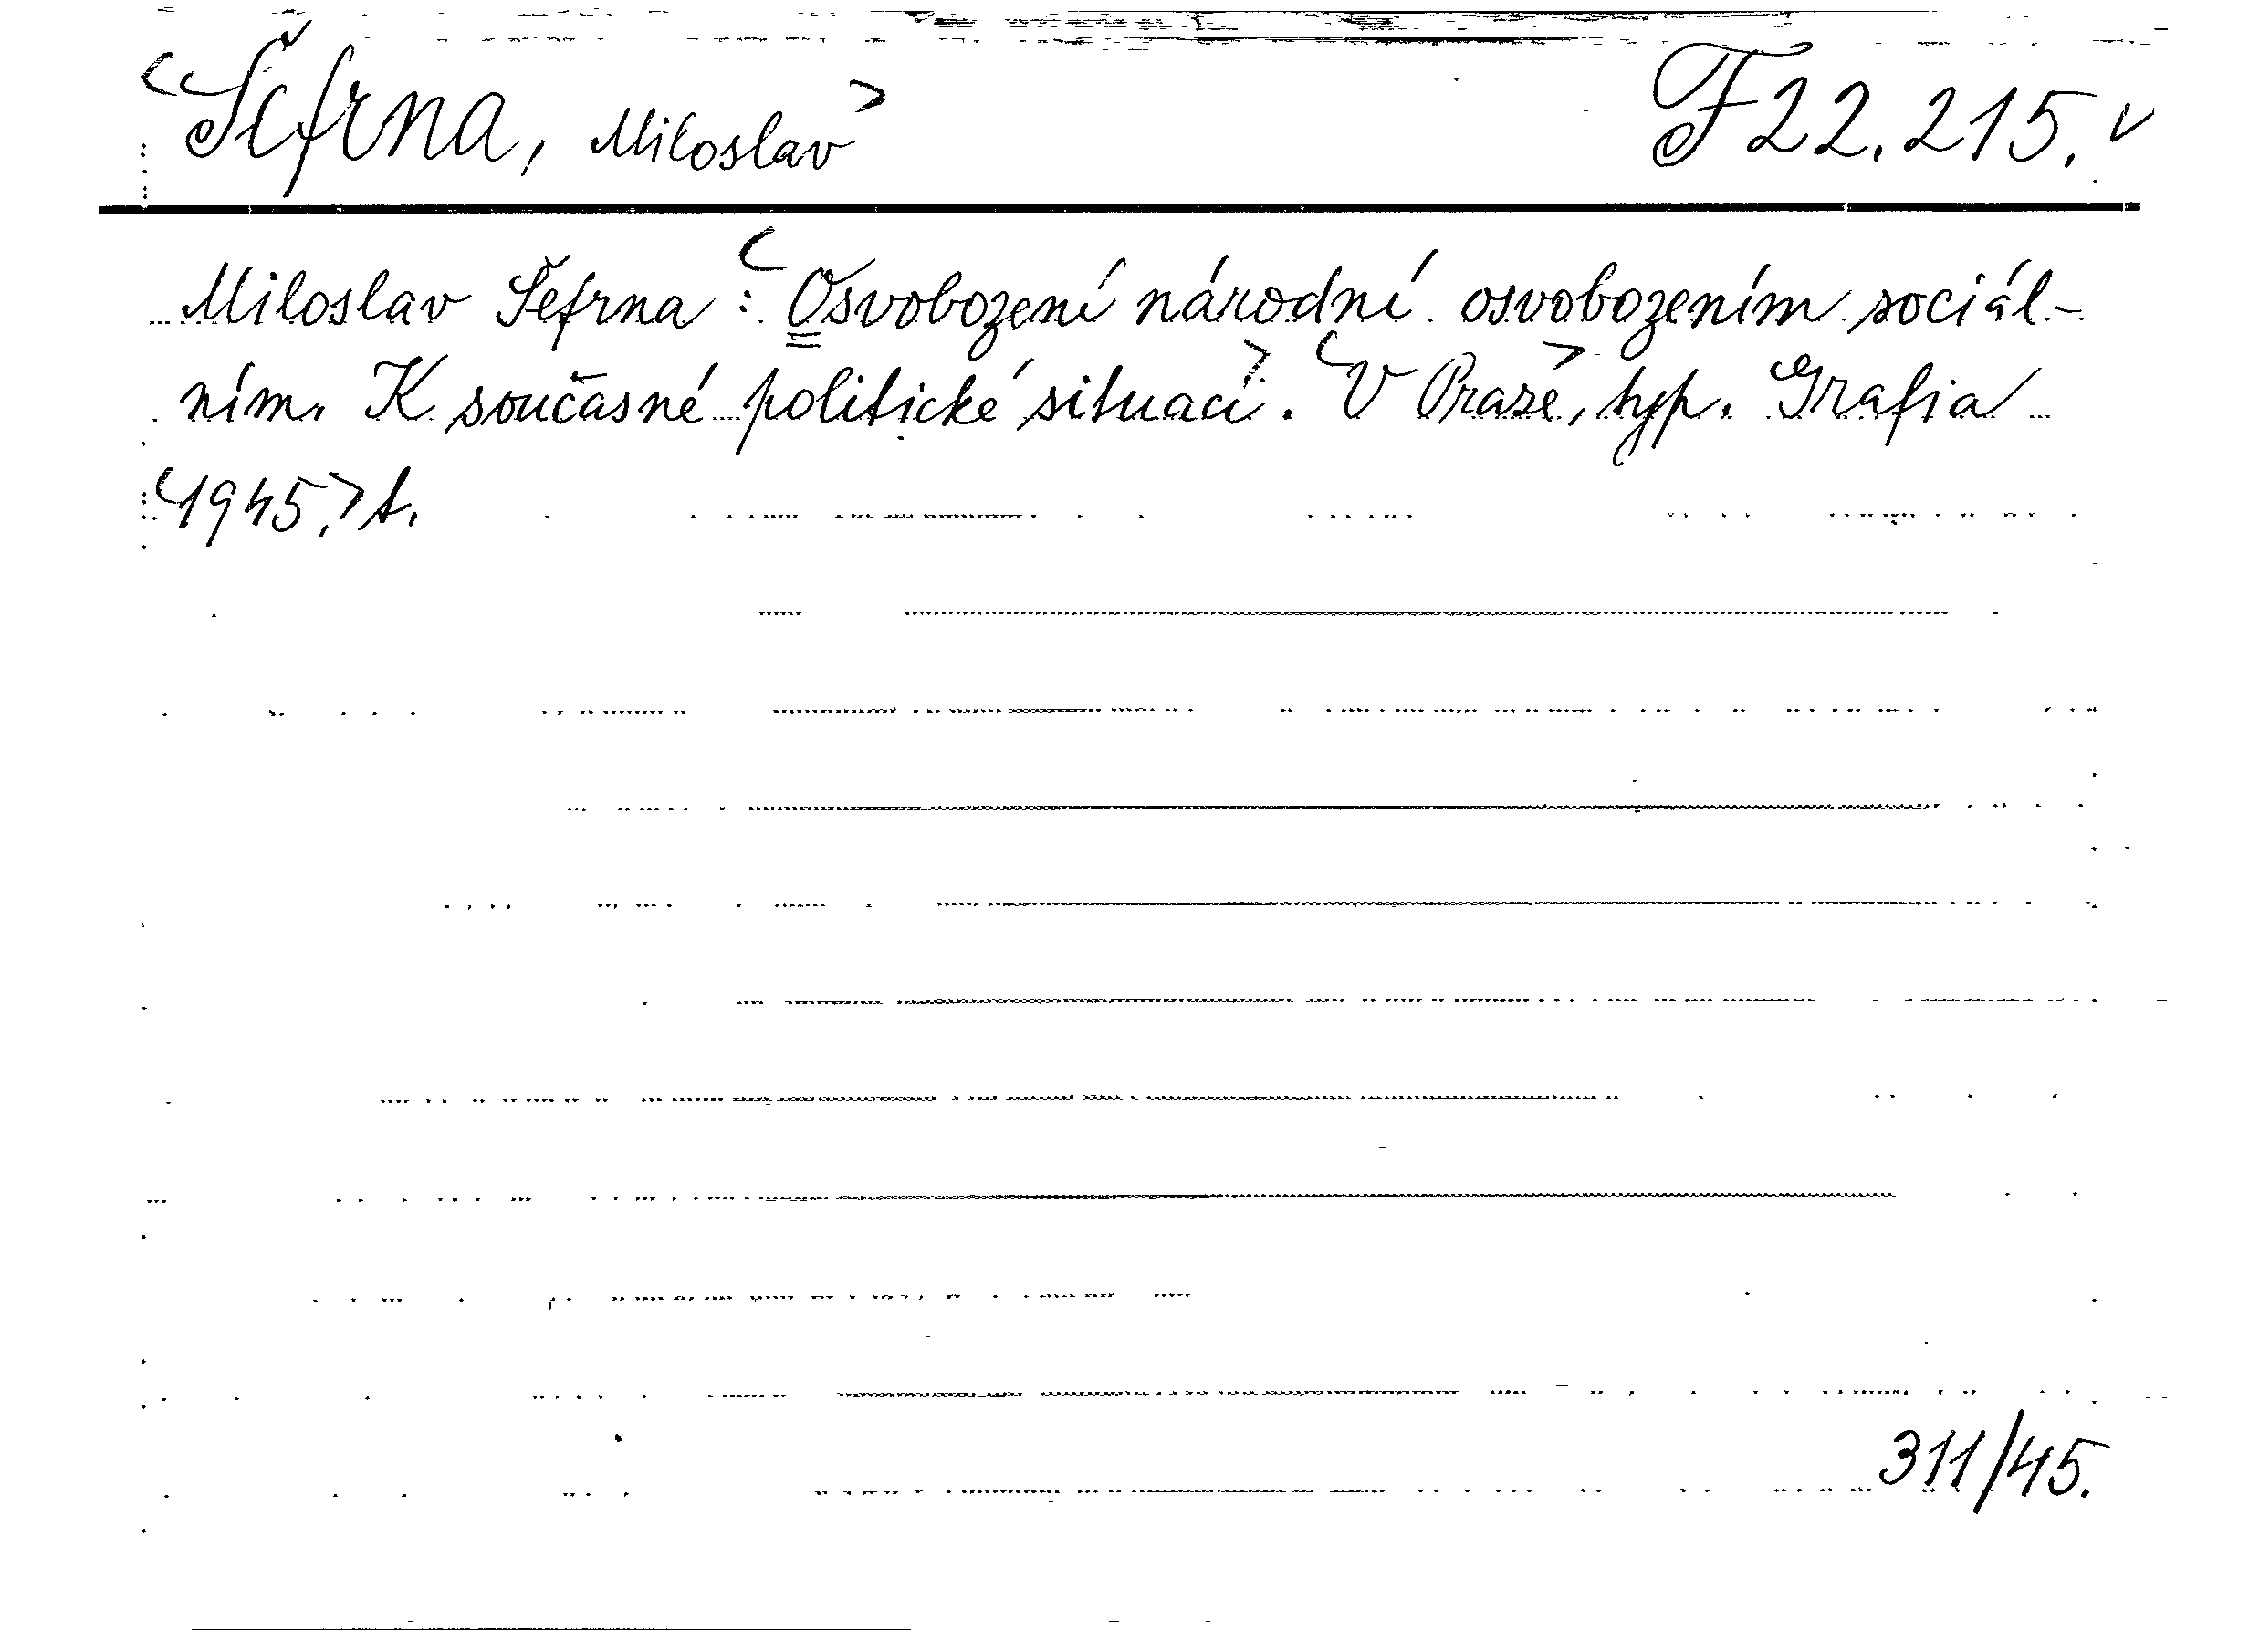 <Šefrna, Miloslav> F 22.215. v
Miloslav Šefrna: <Osvobození národní osvobozením sociál-
ním. K současné politické situaci>. <V Praze>, typ. Grafia
<1945.> 
311/45.